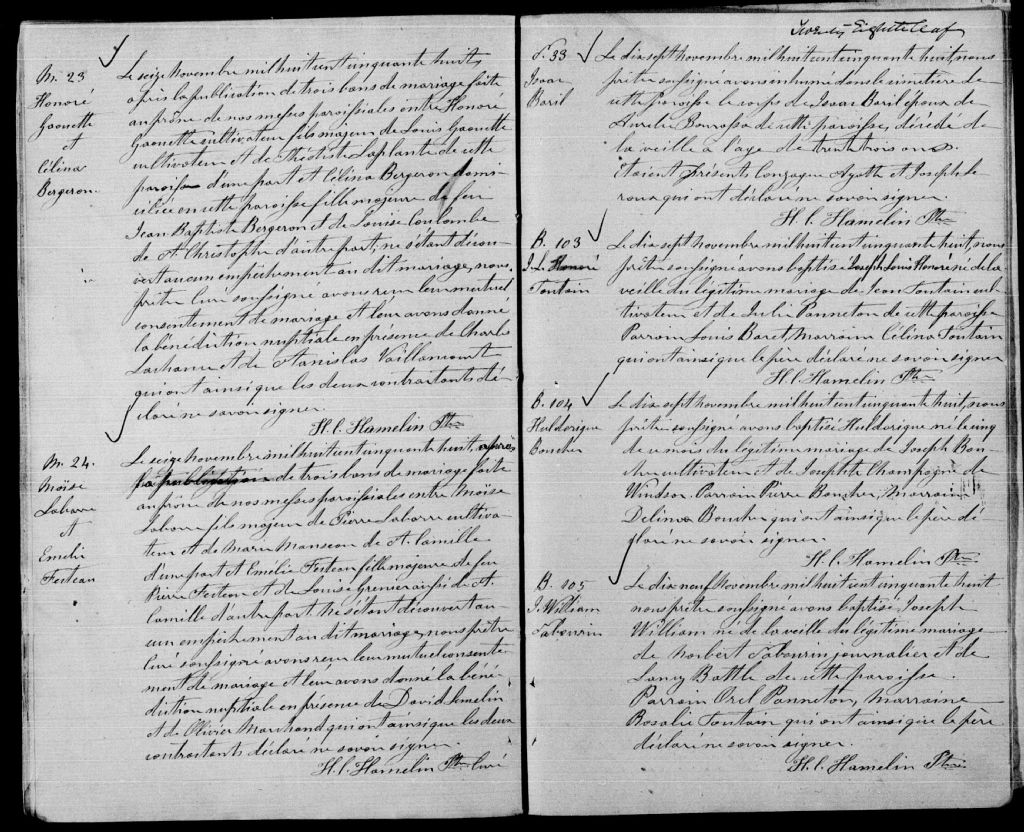 M. 23
Honoré
Gaouette
et
Célina
Bergeron.
Le seize Novembre mil huit cent cinquante huit,
après la publication de trois bans de mariage faite
au prône de nos messes paroissiales entre Honoré
Gaouette cultivateur fils majeur de Louis Gaouette
cultivateur et de Théotiste Laplante de cette
paroisse d'une part et Célina Bergeron domi-
ciliée en cette paroisse fille majeure de feu
Jean Baptiste Bergeron et de Louise Coulombe
de St Christophe d'autre part, ne s'étant décou-
vert aucun empêchement au dit mariage, nous
prêtre curé soussigné avons reçu leur mutuel
consentement de mariage et leur avons donné
la bénédiction nuptiale en présence de Charles
et de Stanislas Vaillancourt
qui ont ainsi que les deux contractants dé-
claré ne savoir signer.
H. C. Hamelin Ptre
M. 24.
Moïse
Labarre
et
Emélie
Festeau
Le seize Novembre mil huit cent cinquante huit, après
la publication de trois bans de mariage faite
au prône de nos messes paroissiales entre Moïse
Labarre fils majeur de Pierre Labarre cultiva-
teur et de Marie Manseau de St. Camille
d'une part et Emélie Festeau fille majeure de feu
Pierre Festeau et de Louise Grenier aussi de St.
Camille d'autre part ne s'étant découvert au-
cun empêchement au dit mariage, nous prêtre
curé soussigné avons reçu leur mutuel consente-
ment de mariage et leur avons donné la béné-
diction nuptiale en présence de David
et de Olivier Marchand qui ont ainsi que les deux
contractants déclaré ne savoir signer.
H. C. Hamelin Ptre Curé
Twenty Eighth leaf
S. 33
Isaac
Baril
Le dix sept Novembre mil huit cent cinquante huit, nous
prêtre soussigné avons inhumé dans le cimetière de
cette paroisse le corps de Isaac Baril époux de
Aurélie Bourassa de cette paroisse, décédé de
la veille à l'age de trente trois ans.
Etaient présents Gonzague Ayotte et Joseph
qui ont déclaré ne savoir signer.
H. C. Hamelin Ptre
B. 103
J. L. Honoré
Toutain
Le dix sept Novembre mil huit cent cinquante huit, nous
prêtre soussigné avons baptisé Joseph Louis Honoré né de la
veille du légitime mariage de Jean Toutain cul-
tivateur et de Julie Panneton de cette paroisse
Parrain Louis Baret, Marraine Célina Toutain
qui ont ainsi que le père déclaré ne savoir signer
H. C. Hamelin Ptre
B. 104
Hulderique
Boucher
Le dix sept Novembre mil huit cent cinquante huit, nous
prêtre soussigné avons baptisé Hulderique né le cinq
de ce mois du légitime mariage de Joseph Bou-
cher cultivateur et de Josephte Champagne de
Windsor. Parrain Pierre Boucher, Marraine
Delima Boucher qui ont ainsi que le père dé-
claré ne savoir signer.
H. C. Hamelin Ptre
B. 105
J. William
Tabourin
Le dix neuf Novembre mil huit cent cinquante huit
nous prêtre soussigné avons baptisé Joseph
William né de la veille du légitime mariage
de Norbert Tabourin journalier et de
Lancy Battle de cette paroisse.
Parrain Oril Panneton, Marraine
Rosalie Toutain qui ont ainsi que le père
déclaré ne savoir signer.
H. C. Hamelin Ptre